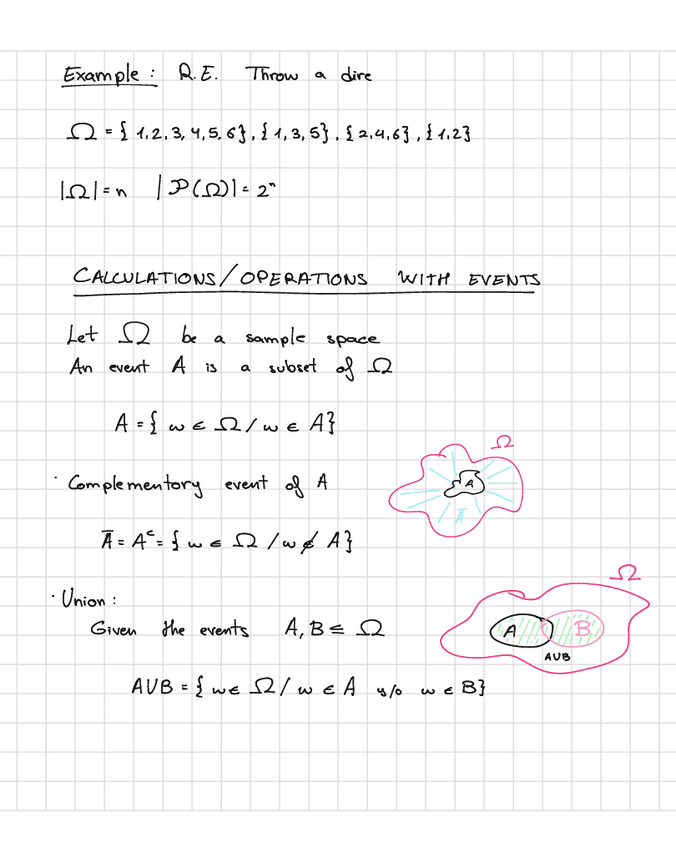 Example: R.E. Throw a dire
Ω = { 1,2,3,4,5,6}, { 1,3,5}, { 2,4,6}, { 1,2}
|Ω| = n |P(Ω)| = 2ⁿ
CALCULATIONS/OPERATIONS WITH EVENTS
Let Ω be a sample space
An event A is a subset of Ω
A = { w ∈ Ω / w ∈ A}
Ω
A
Ā
· Complementary event of A
Ā = Aᶜ = { w ∈ Ω / w ∉ A}
Ω
· Union:
Given the events A, B ⊆ Ω
A B
AUB
AUB = { w ∈ Ω / w ∈ A y/o w ∈ B}